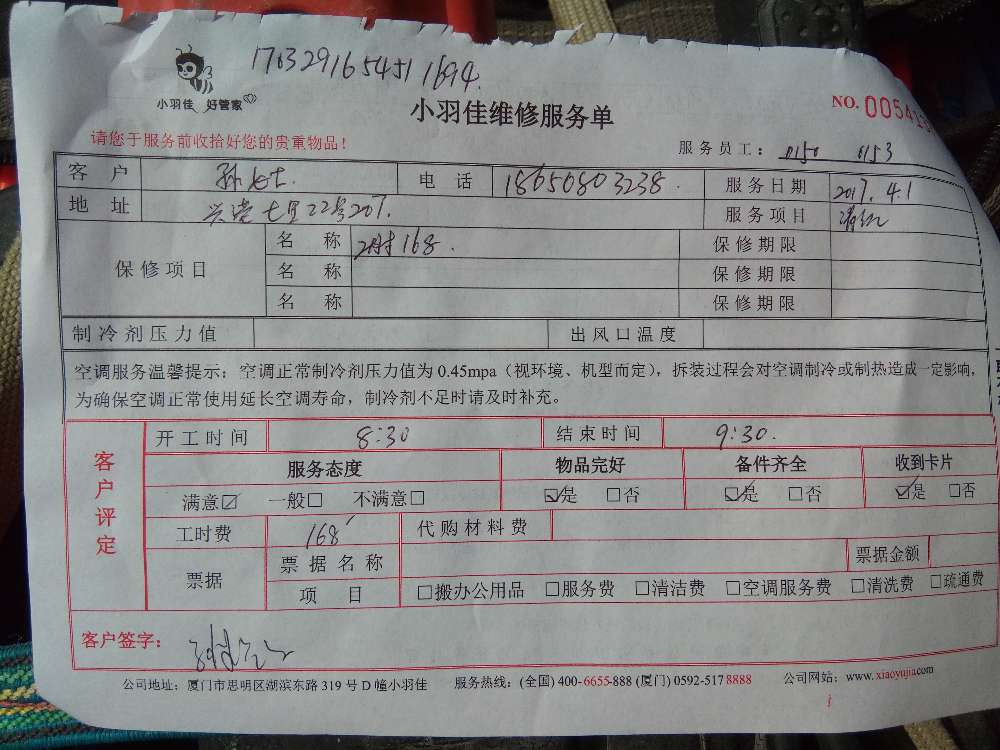 1703291654511694
小羽佳 好管家
小羽佳维修服务单
NO. 005413
请您于服务前收拾好您的贵重物品！
服务员工： 0150 0153
客户 孙女士. 电话 18650803238. 服务日期 2017.4.1
地址 七里22号207. 服务项目
保修项目
名称 2小时168. 保修期限
名称 保修期限
名称 保修期限
制冷剂压力值 出风口温度
空调服务温馨提示：空调正常制冷剂压力值为0.45mpa（视环境、机型而定），拆装过程会对空调制冷或制热造成一定影响，
为确保空调正常使用延长空调寿命，制冷剂不足时请及时补充。
客户评定
开工时间 8:30 结束时间 9:30.
服务态度 物品完好 备件齐全 收到卡片
满意☑ 一般□ 不满意□ ☑是 □否 ☑是 □否 ☑是 □否
工时费 168 代购材料费
票据 票据名称 票据金额
项目 □搬办公用品 □服务费 □清洁费 □空调服务费 □清洗费 □疏通费
客户签字：
公司地址：厦门市思明区湖滨东路319号D幢小羽佳 服务热线：(全国) 400-6655-888 (厦门) 0592-517 8888 公司网站：www.xiaoyujia.com